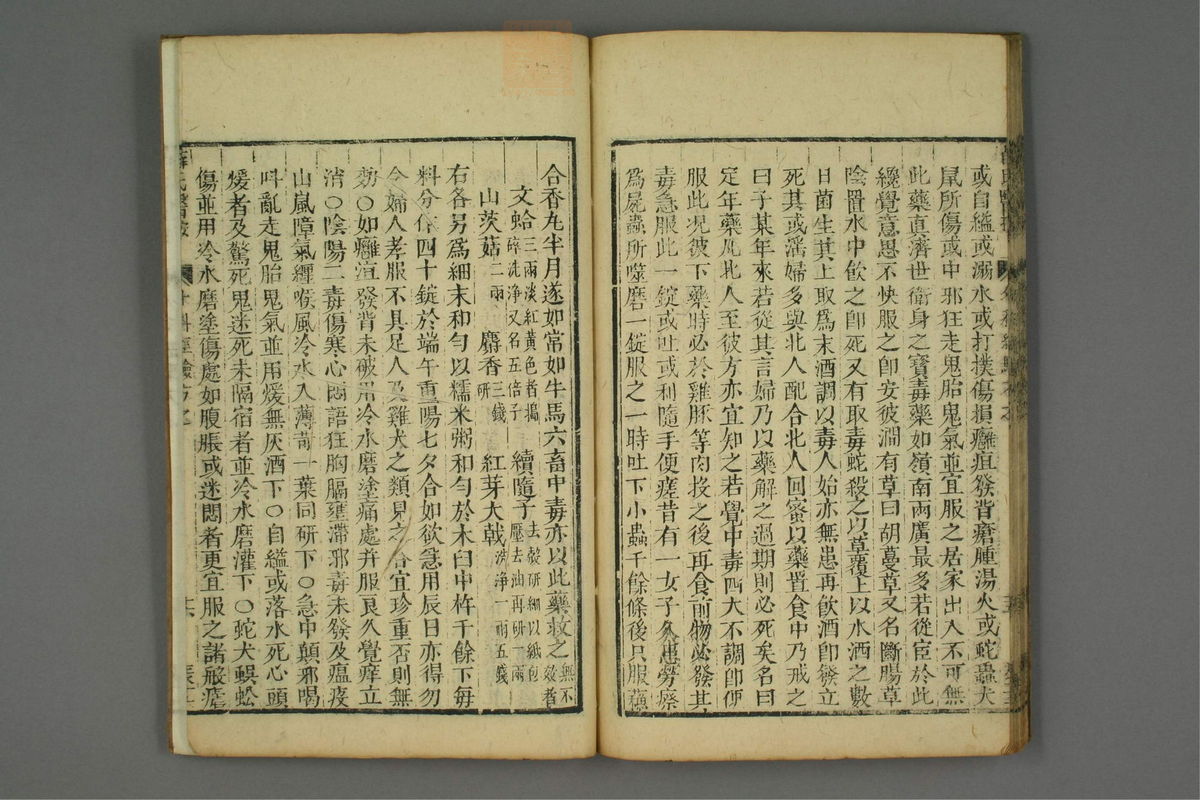 或自縊或溺水或打撲傷損癰疽發背瘡腫湯火或蛇蟲犬
鼠所傷或中邪狂走鬼胎鬼氣並宜服之居家出入不可無
此藥真濟世衛身之寶毒藥如嶺南兩廣最多若從臣於此
纔覺意思不快服之即安彼澗有草曰胡蔓草又名斷腸草
陰置水中飲之即死又有取毒蛇殺之以草覆上以水洒之數
日菌生其上取爲末酒調以毒人始亦無患再飲酒即發立
死其或滛婦多與北人配合北人回蜜以藥置食中乃戒之
曰子某年來若從其言婦乃以藥解之過期則必死矣名曰
定年藥凡北人至彼方亦宜知之若覺中毒四大不調即便
服此况彼下藥時必於雞豚等肉投之後再食前物必發其
毒急服此一錠或吐或利隨手便瘥昔有一女子久患勞瘵
爲屍蟲所噬磨一錠服之一時吐下小蟲千餘條後只服蘓
合香丸半月遂如常如牛馬六畜中毒亦以此藥救之無不效者
文蛤三兩淡紅黃色者搗碎洗淨又名五倍子 續隨子去殼研細以紙包壓去油再研一兩
山茨菇二兩 麝香三錢研 紅芽大戟洗淨一兩五錢
右各另爲細末和勻以糯米粥和勻於木臼中杵千餘下每
料分作四十錠於端午重陽七夕合如欲急用辰日亦得勿
令婦人孝服不具足人及雞犬之類見之 合宜珍重否則無
効〇如癰疽發背未破用冷水磨塗痛處并服良久覺痒立
消〇陰陽二毒傷寒心悶語狂胸膈壅滯邪毒未發及瘟疫
山嵐障氣纏喉風冷水入薄荷一葉同研下〇急中顛邪喝
呌亂走鬼胎鬼氣並用煖無灰酒下〇自縊或落水死心頭
煖者及驚死鬼迷死未隔宿者並冷水磨灌下〇蛇犬蜈蚣
傷並用冷水磨塗傷處如腹脹或迷悶者更宜服之諸般瘡
薛氏醫案 十科經驗方之 十六